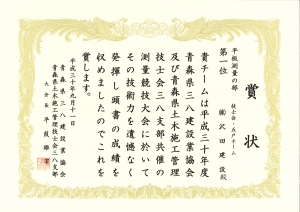 賞状
平板測量の部
第一位
技士会・八戸チーム
㈱沢田建設殿
貴チームは平成三十年度
青森県三八建設業協会
及び青森県土木施工管理
技士会三八支部共催の
測量競技大会に於いて
その技術力を遺憾なく
発揮し頭書の成績を
収めましたのでこれを
賞します。
平成三十年九月十一日
青森県三八建設業協会
青森県土木施工管理技士会三八支部
大会長